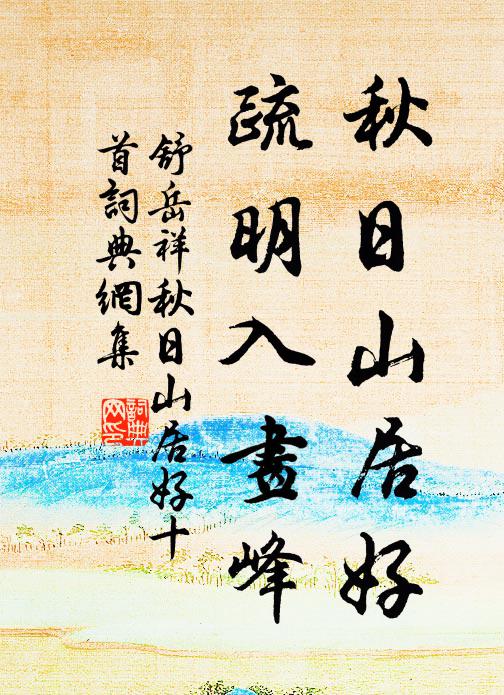 秋日山居好
疏明入畫峰
舒岳祥秋日山居好十
首詞典網集
詞典
网印